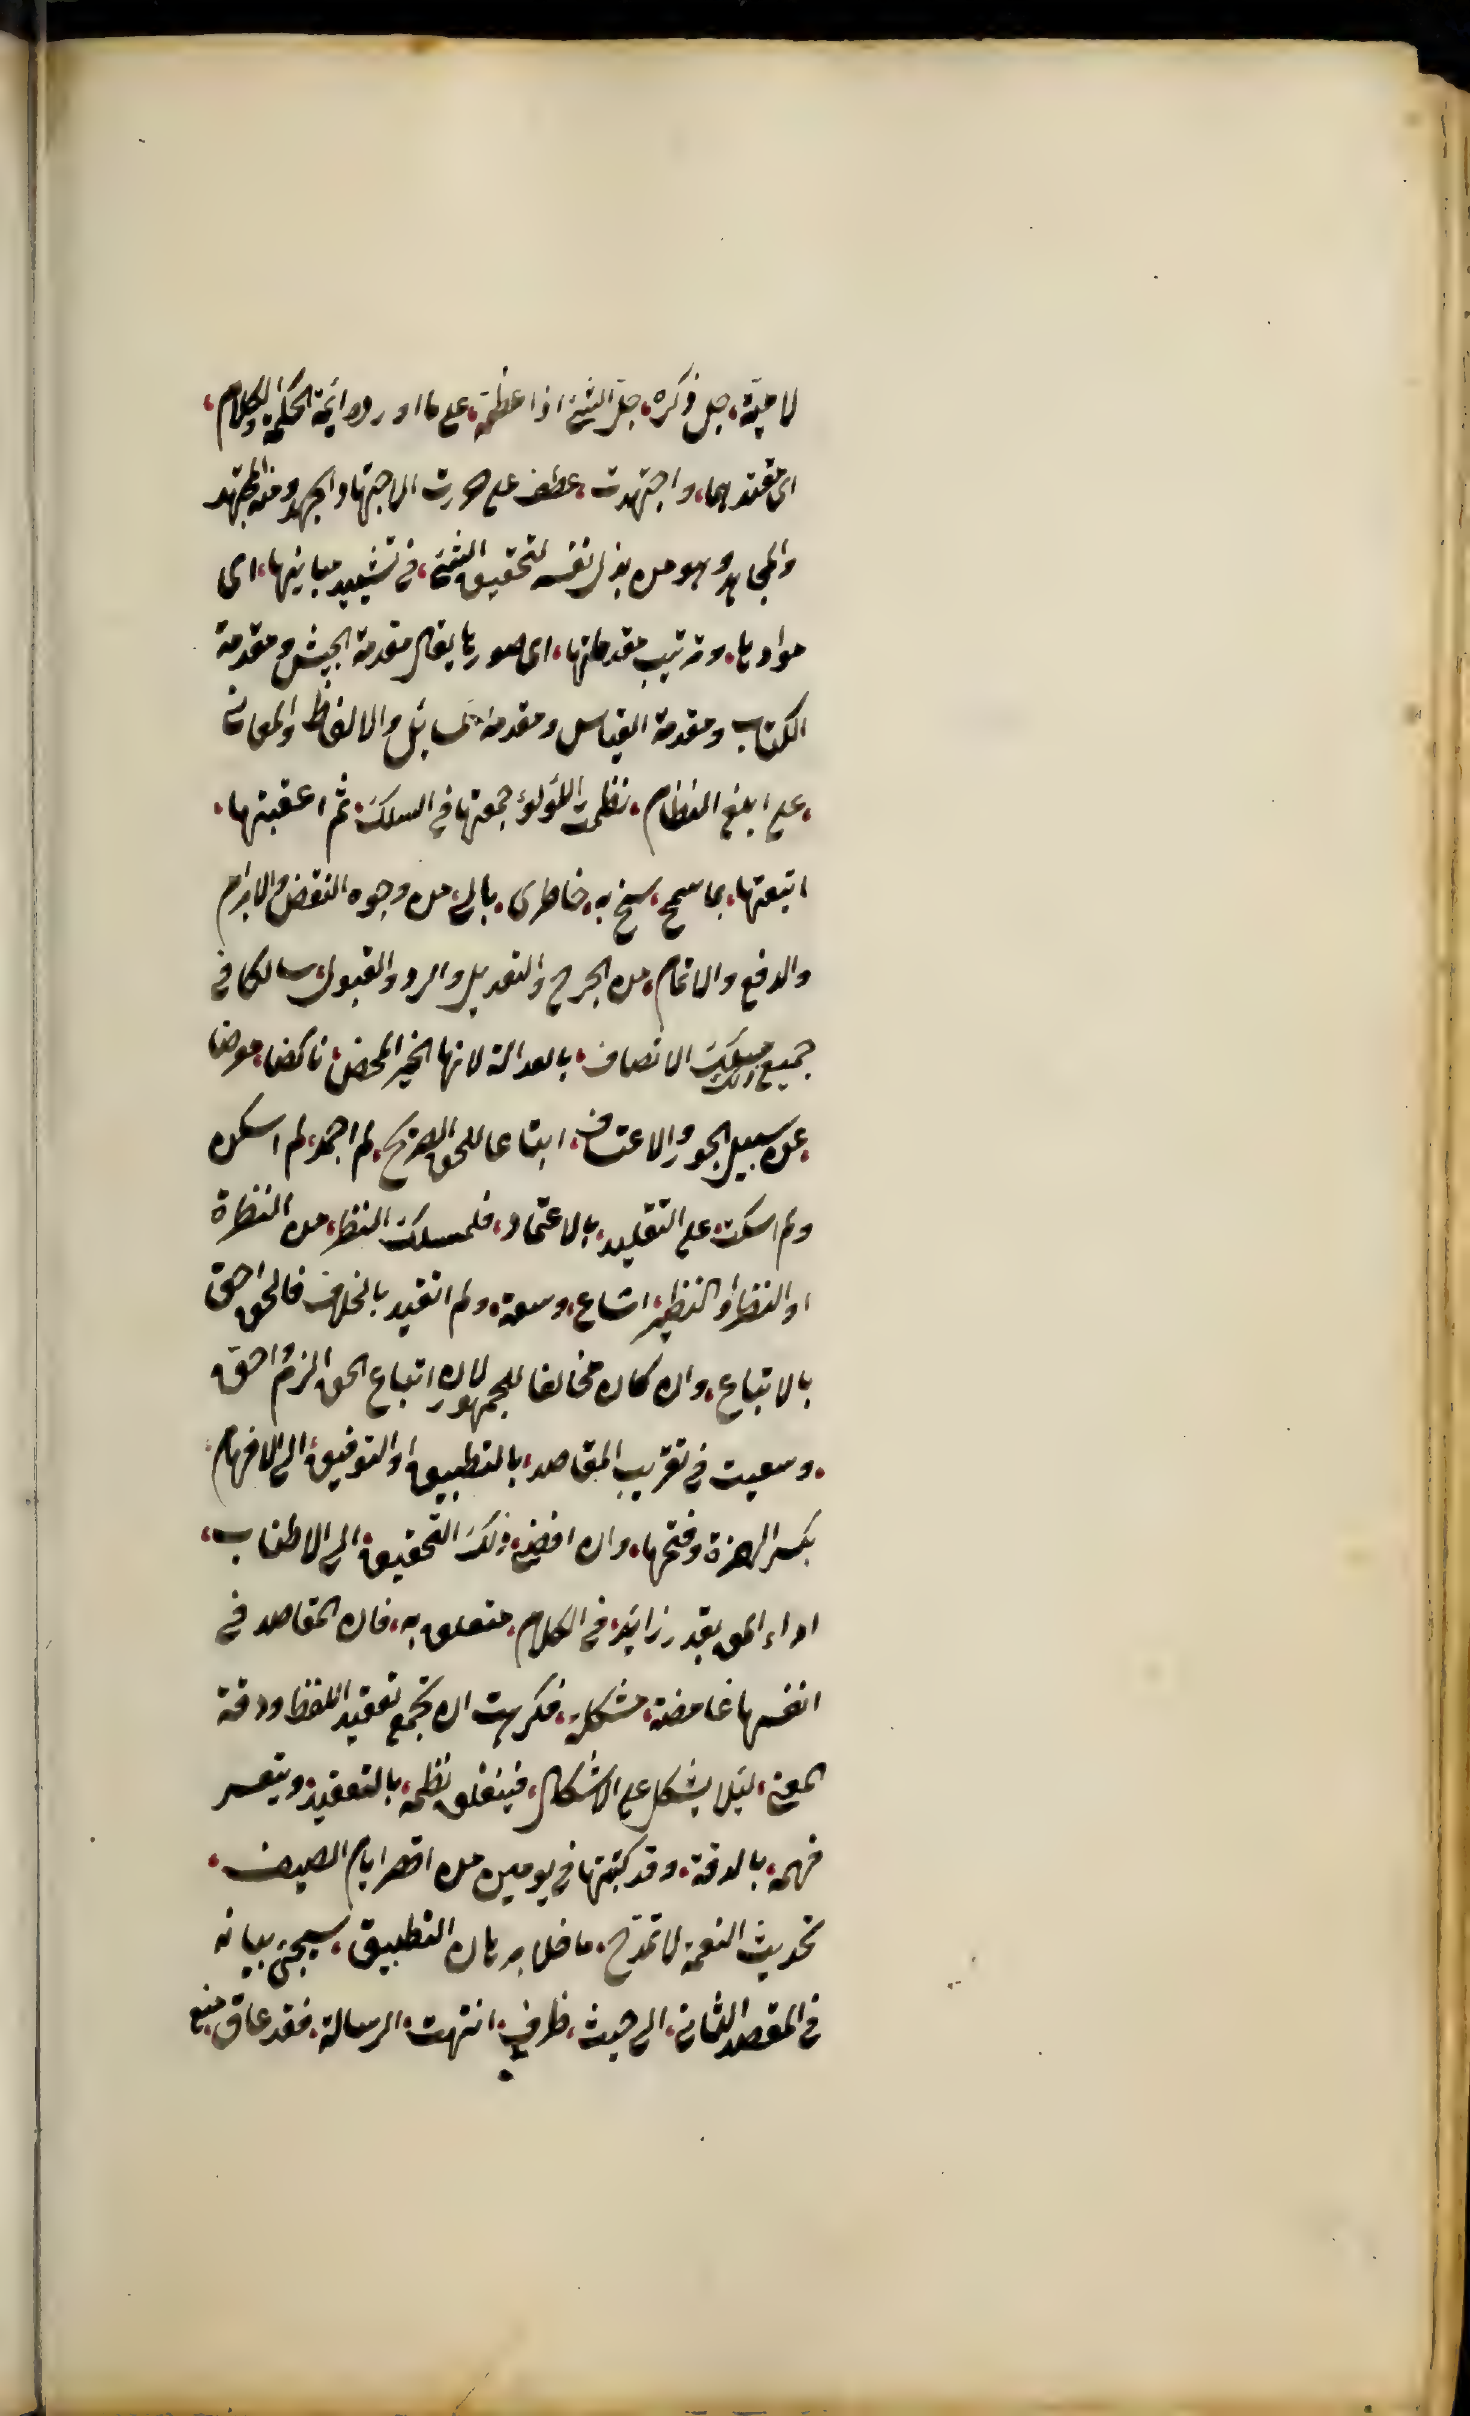 لامية، جل ذكره، جل الشئ اذا عظم، على ما اورده ائمة الحكمة والكلام،
اى مقتديهما، واجتهدت، عطف على صرت الاجتهاد الجهد ومنه المجتهد
والمجاهد وهو من بذل نفسه لتحقيق الشئ، فى تشييد مبانيها، اى
موادها، وترتيب مقدماتها، اى صورها يقال مقدمة الجيش ومقدمة
الكتاب ومقدمة القياس ومقدمة المسائل والالفاظ والمعانى
، على ابلغ النظام، نظمت اللؤلؤ جمعتها فى السلك، ثم اعقبتها،
اتبعتها، بما سمح، سنح به، خاطرى، بالى، من وجوه النقض والابرام
والدفع والاتمام، من الجرح والتعديل والرد والقبول، سالكا فى
جميع ذلك مسلك الانصاف، بالعدالة لانها الخير المحض، ناكصا، معرضا
، عن سبيل الجور والاعتساف، ابتاعا للحق الصريح، لم اجمد، لم اسكن
ولم اسكت، على التقليد، بالاعتماد، فلمسلك النظر، من النظرة
او النظر او النظير، اتساع، وسعة، ولم اتقيد بالخلاف فالحق احق
بالاتباع، وان كان مخالفا للجمهور لان اتباع الحق الزم واحق
، وسعيت فى تقريب المقاصد، بالتطبيق او التوفيق، الى الافهام
بكسر الهمزة وفتحها، وان افضى، ذلك التحقيق، الى الاطناب،
اداء المق بقدر زائد، فى الكلام، متعلق به، فان المقاصد فى
انفسها غامضة، مشكلة، فكرهت ان يجمع تعقيد اللفظ ودقة
المعنى، ليلا يشكل على الاشكال، فينغلق نظمه، بالتعقيد، ويتعسر
فهمه، بالدقة، وقد كتبتها فى يومين من اقصر ايام الصيف،
تحديث النعمة لا تمدح، ما خلا برهان التطبيق، سيجئ بيانه
فى المقصد الثانى، الى حيث، ظرف، انتهت، الرسالة، فقد عاق، منع